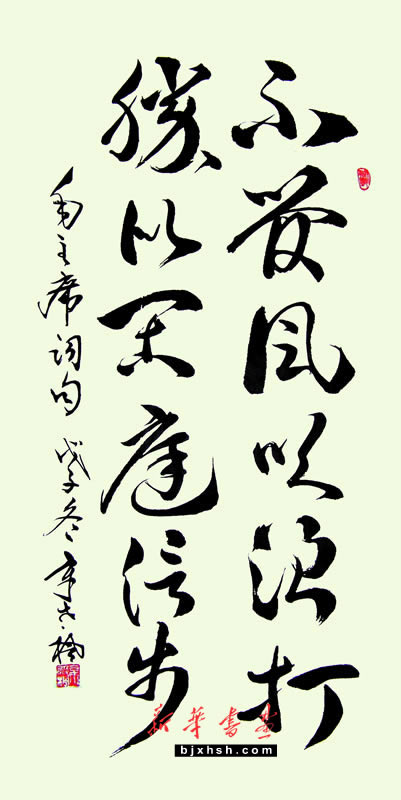 不管风吹浪打
勝似闲庭信步
毛主席词句 戊子冬
新華書画
bjxhsh.com